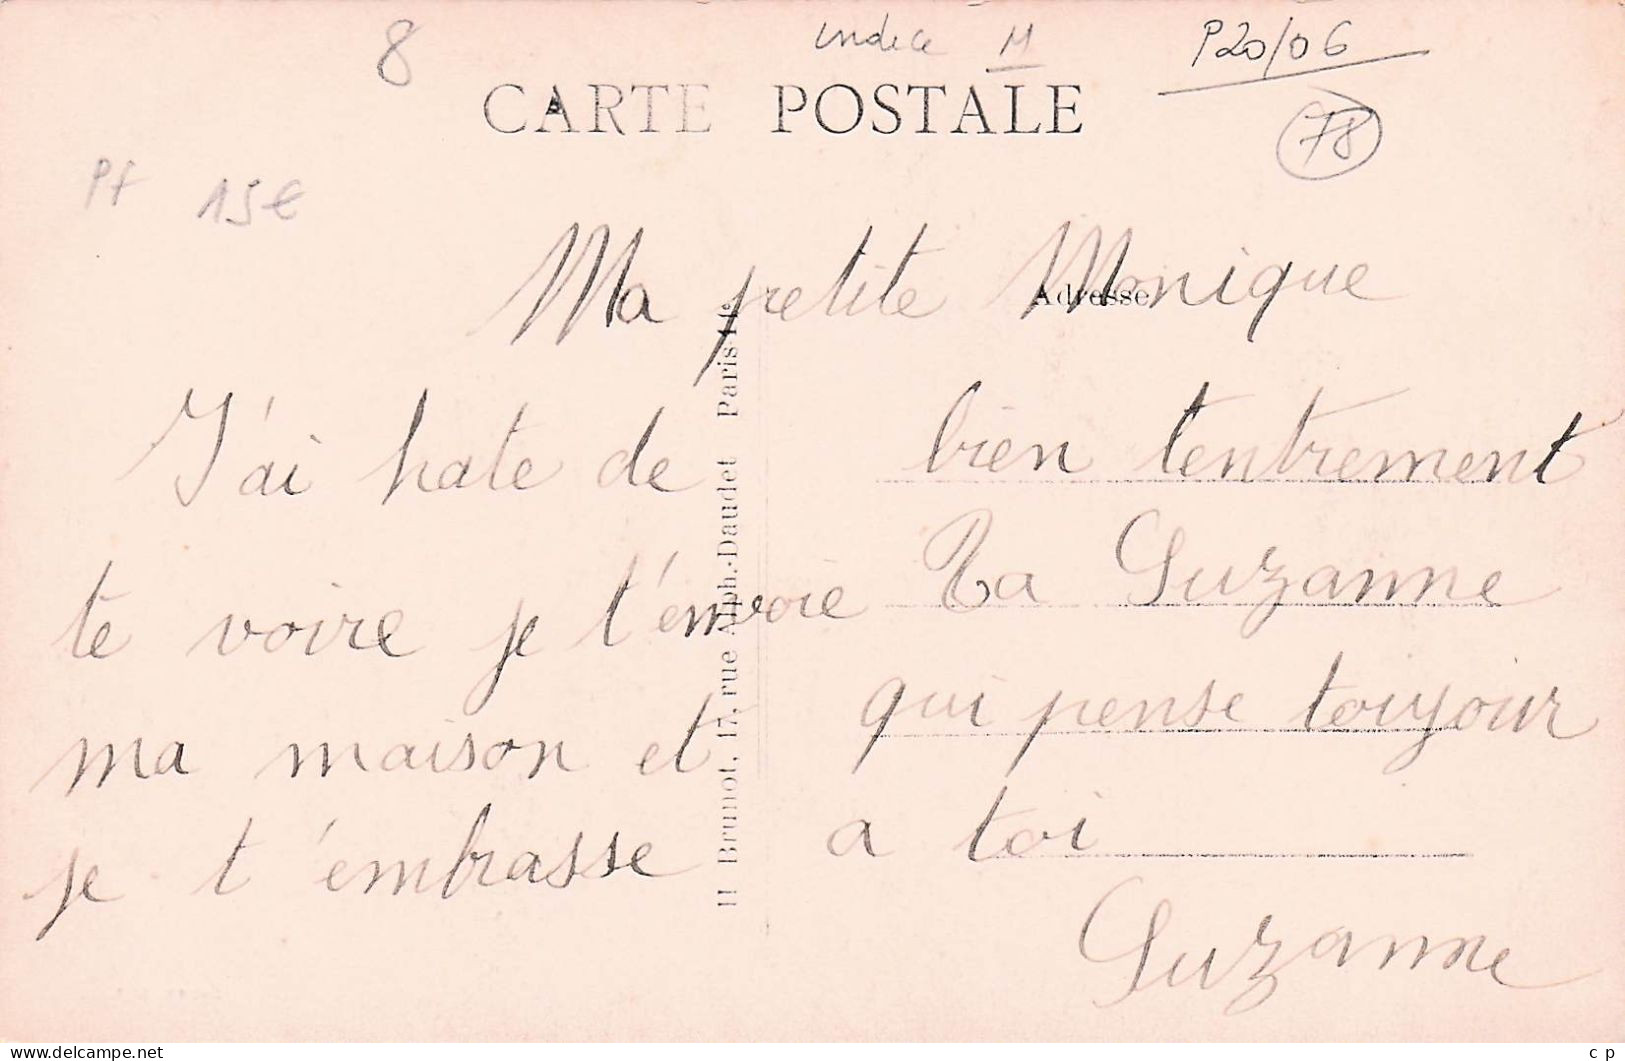 8
indice M
P20/06
CARTE POSTALE
78
Pf 15€
Ma petite Monique
Adresse
J'ai hate de
te voire je t'envoie
ma maison et
je t'embrasse
H Brunot, 17, rue Alph.-Daudet Paris-14e
bien tentrement
Ta Suzanne
qui pense toujour
a toi
Suzanne
www.delcampe.net
c p